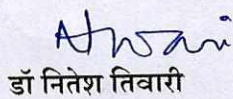 डॉ नितेश तिवारी